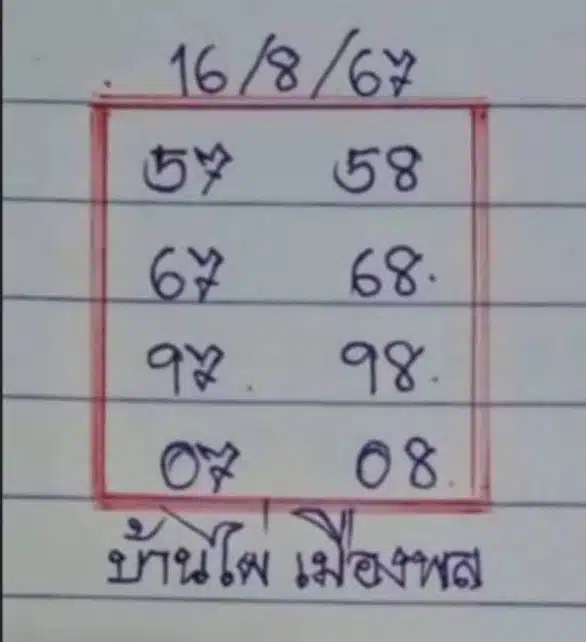 16/8/67
57 58
67 68.
97. 98.
07 08.
บ้านไผ่ เมืองพล